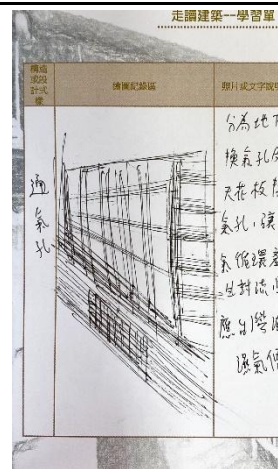 走讀建築--學習單
構造或設計式樣
繪圖記錄區
照片或文字說明
通氣孔
分為地下
換氣孔及
天花板
氣孔，讓
氣循環產
生對流
應台灣
濕氣